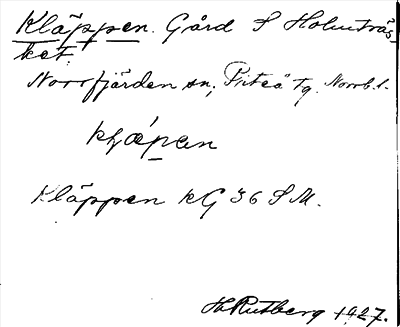 Kläppen. Gård S Holmträs
ket.
Norrfjärden sn, Piteå tg. Norrb. l.
klǽpan
Kläppen kG 36 S M.
H. Rutberg 1927.